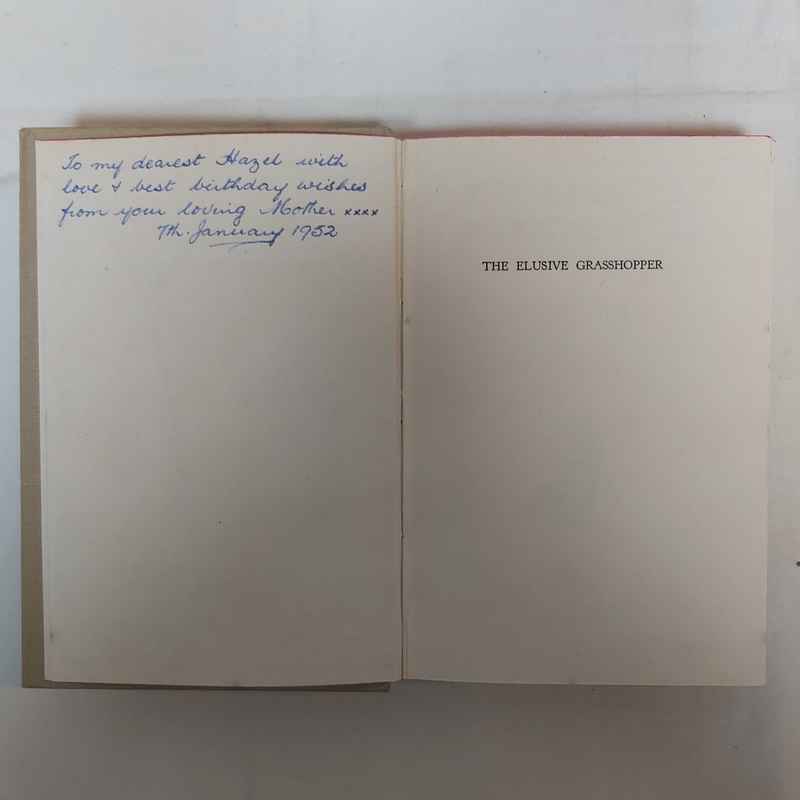 To my dearest Hazel with
love & best birthday wishes
from your loving Mother xxxx
7th. January 1952
THE ELUSIVE GRASSHOPPER